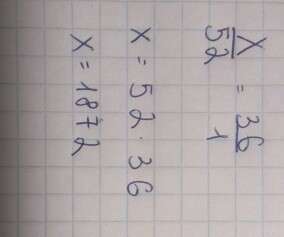 x/52 = 36/1
x = 52 · 36
x = 1872